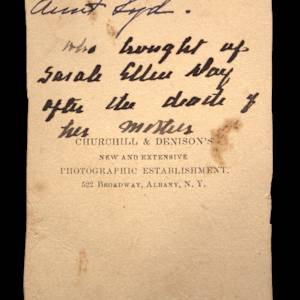 Aunt Syd.
who brought up
Sarah Ellen Day
after the death of
her Mother
CHURCHILL & DENISON'S
NEW AND EXTENSIVE
PHOTOGRAPHIC ESTABLISHMENT.
522 BROADWAY, ALBANY, N. Y.